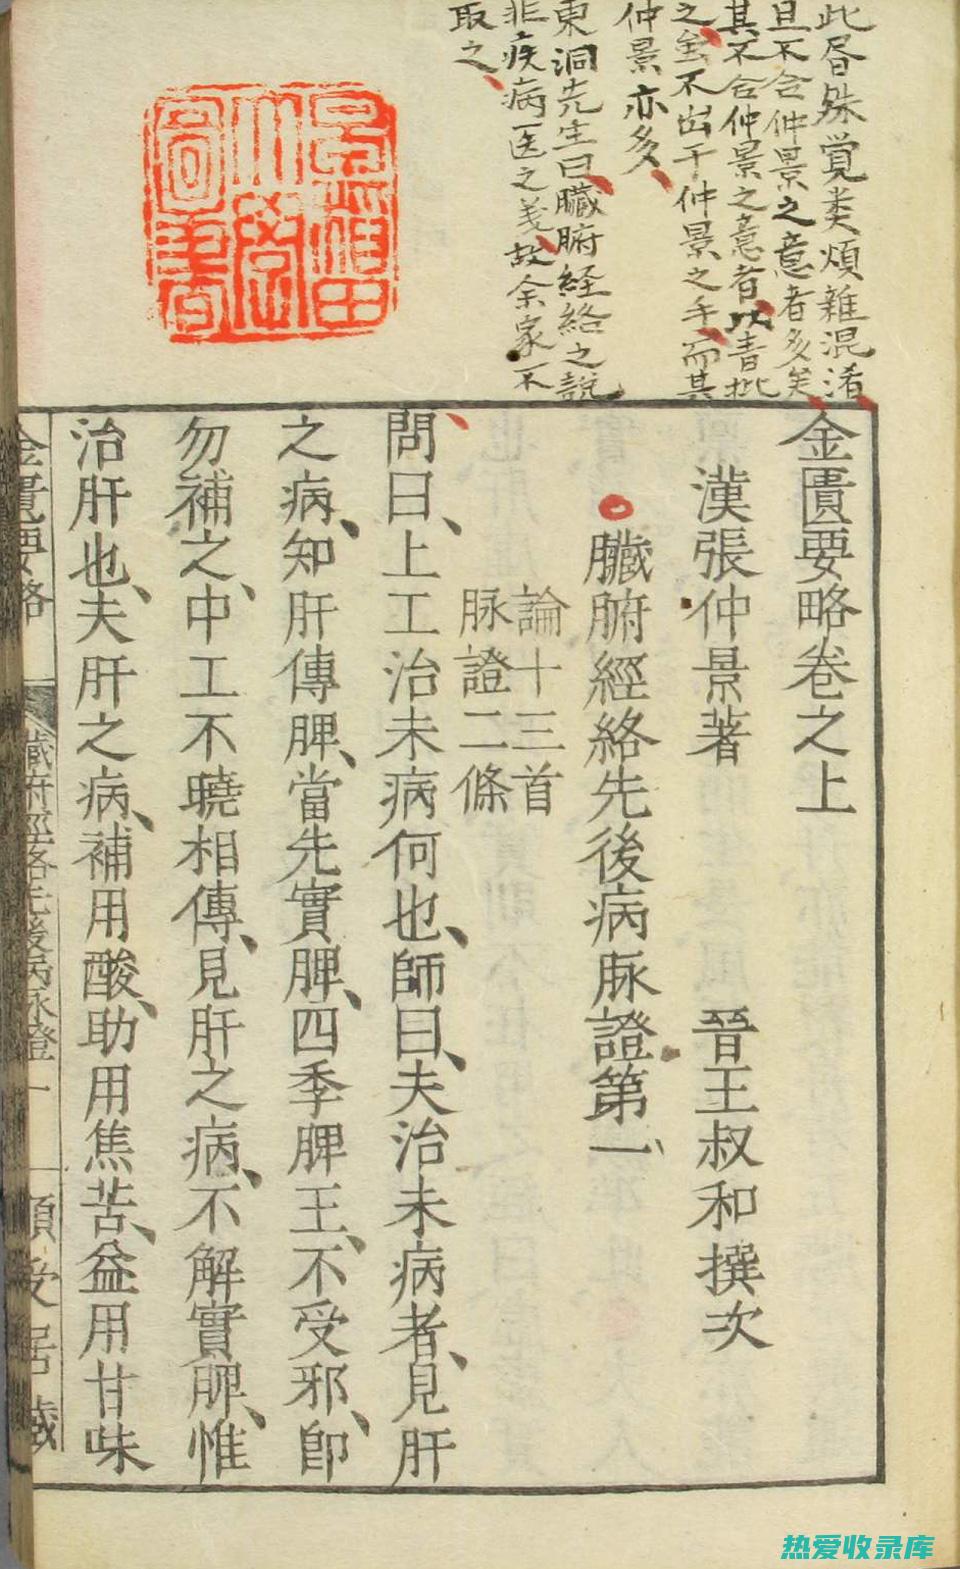 此昏殊覚类煩雜混淆
且不合仲景之意者多矣
其不合仲景之意者以青批
之不出于仲景之手而其
仲景亦多
東洞先生曰臓腑経絡之説
非疾病医之義故余家不
取之
早稻田
大學
圖書
金匱要略卷之上
漢張仲景著 晉王叔和撰次
臟腑經絡先後病脉證第一
論十三首
脉證二條
問曰、上工治未病何也、師曰、夫治未病者、見肝
之病、知肝傳脾、當先實脾、四季脾王、不受邪、即
勿補之、中工不曉相傳、見肝之病、不解實脾、惟
治肝也、夫肝之病、補用酸、助用焦苦、益用甘味
金匱要略 臟腑經絡先後病脉證一 順受居藏
热爱收录库